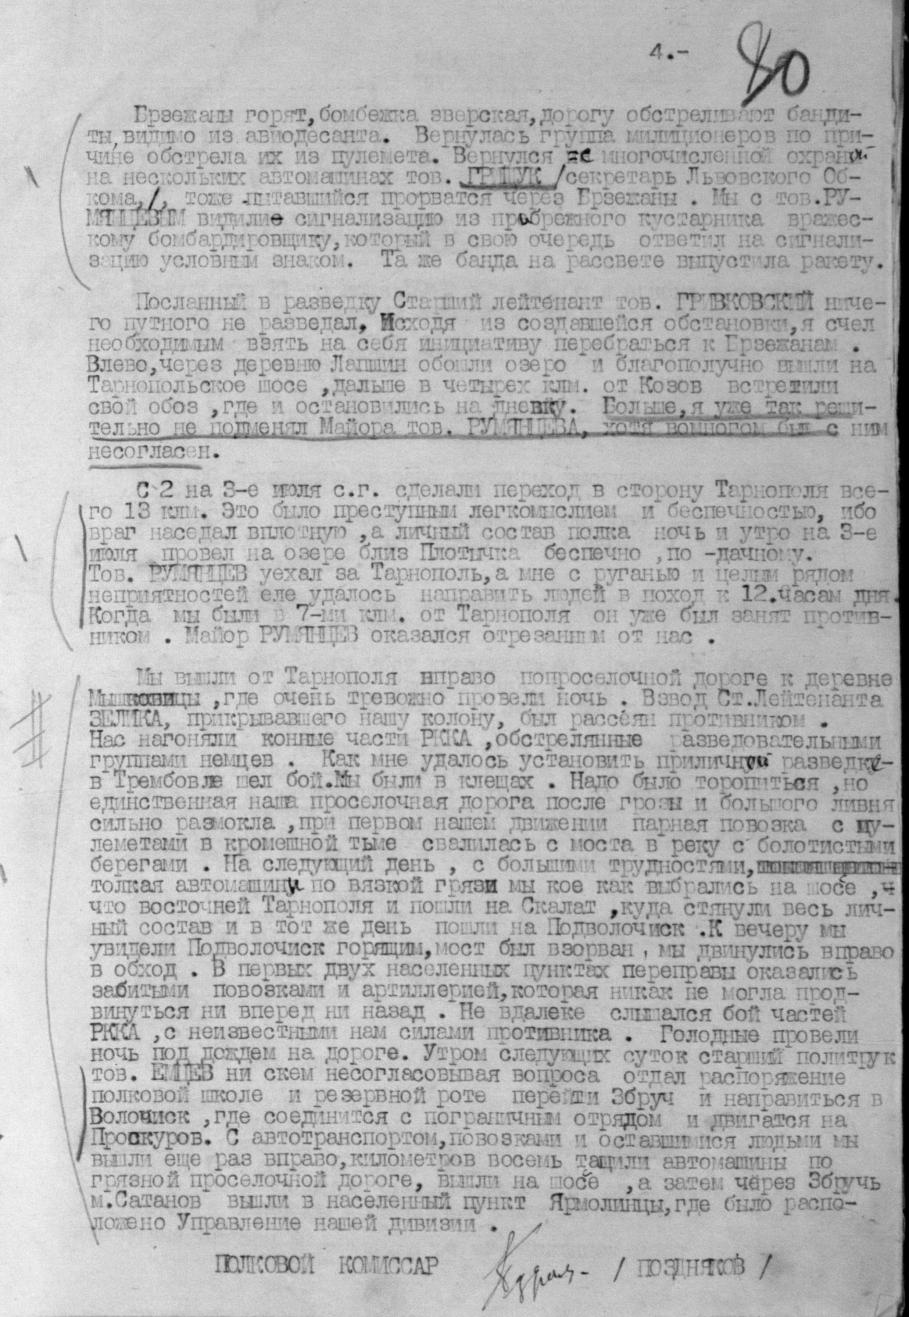 4.-
80
Брзежаны горят,бомбежка зверская,дорогу обстреливают банди-
ты,видимо из авиодесанта. Вернулась группа милиционеров по при-
чине обстрела их из пулемета. Вернулся не многочисленной охраной
на нескольких автомашинах тов. ГРИЩУК /секретарь Львовского Об-
кома,/, тоже питавшийся прорватся через Брзежаны . Мы с тов.РУ-
МЯНЦЕВЫМ видили сигнализацию из прибрежного кустарника вражес-
кому бомбардировщику,который в свою очередь ответил на сигнали-
зацию условным знаком. Та же банда на рассвете выпустила ракету.
Посланный в разведку Старший лейтенант тов. ГРИВКОВСКИЙ ниче-
го путного не разведал, Исходя из создавшейся обстановки,я счел
необходимым взять на себя инициативу перебраться к Брзежанам .
Влево,через деревню Лапшин обошли озеро и благополучно вышли на
Тарнопольское шосе ,дальше в четырех клм. от Козов встретили
свой обоз ,где и остановились на дневку. Больше,я уже так реши-
тельно не подменял Майора тов. РУМЯНЦЕВА, хотя вомногом был с ним
несогласен.
С 2 на 3-е июля с.г. сделали переход в сторону Тарнополя все-
го 13 клм. Это было преступным легкомыслием и беспечностью, ибо
враг наседал вплотную ,а личный состав полка ночь и утро на 3-е
июля провел на озере близ Плотычка беспечно ,по -дачному.
Тов. РУМЯНЦЕВ уехал за Тарнополь,а мне с руганью и целым рядом
неприятностей еле удалось направить людей в поход к 12.часам дня.
Когда мы были в 7-ми клм. от Тарнополя он уже был занят против-
ником . Майор РУМЯНЦЕВ оказался отрезанным от нас .
Мы вышли от Тарнополя вправо попроселочной дороге к деревне
Мышковицы ,где очень тревожно провели ночь . Взвод Ст.Лейтенанта
ЗЕЛИКА, прикрывавшего нашу колону, был рассеян противником .
Нас нагоняли конные части РККА ,обстрелянные разведовательными
группами немцев . Как мне удалось установить приличной разведкой-
в Трембовле шел бой.Мы были в клещах . Надо было торопиться ,но
единственная наша проселочная дорога после грозы и большого ливня
сильно размокла ,при первом нашем движении парная повозка с пу-
леметами в кромешной тьме свалилась с моста в реку с болотистыми
берегами . На следующий день , с большими трудностями,
толкая автомашины по вязкой грязи мы кое как выбрались на шосе ,
что восточней Тарнополя и пошли на Скалат ,куда стянули весь лич-
ный состав и в тот же день пошли на Подволочиск .К вечеру мы
увидели Подволочиск горящим,мост был взорван , мы двинулись вправо
в обход . В первых двух населенных пунктах переправы оказались
забитыми повозками и артиллерией,которая никак не могла прод-
винуться ни вперед ни назад . Не вдалеке слышался бой частей
РККА ,с неизвестными нам силами противника . Голодные провели
ночь под дождем на дороге. Утром следующих суток старший политрук
тов. ЕМЦЕВ ни скем несогласовывая вопроса отдал распоряжение
полковой школе и резервной роте перейти Збруч и направиться в
Волочиск ,где соединится с пограничным отрядом и двигатся на
Проскуров. С автотранспортом,повозками и оставшимися людьми мы
вышли еще раз вправо,километров восемь тащили автомашины по
грязной проселочной дороге, вышли на шосе ,а затем через Збручь
м.Сатанов вышли в населенный пункт Ярмолинцы,где было распо-
ложено Управление нашей дивизии .
ПОЛКОВОЙ КОМИССАР / ПОЗДНЯКОВ /